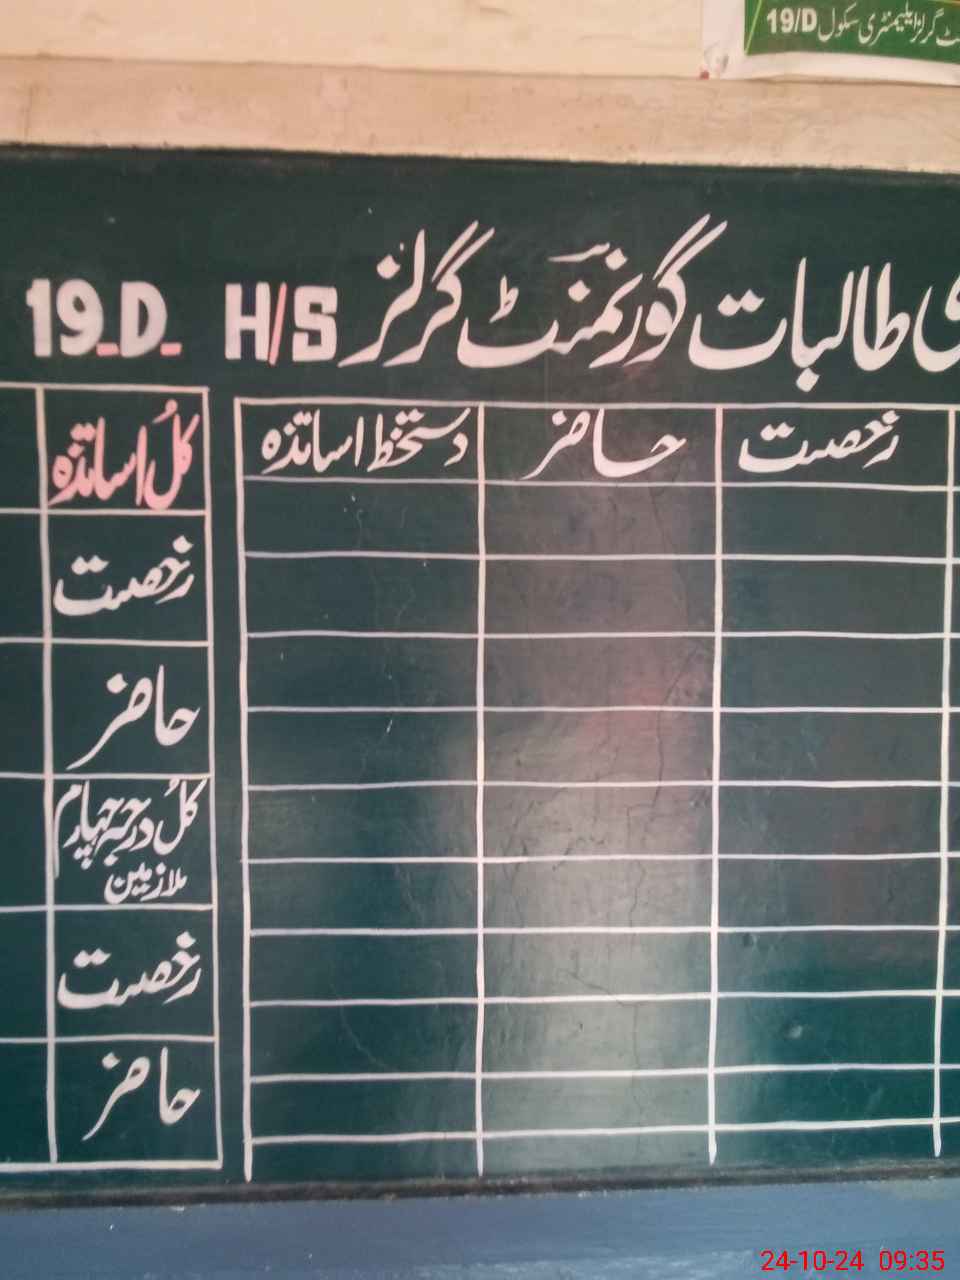 گرلز ایلیمنٹری سکول 19/D
طالبات گورنمنٹ گرلز H/S 19-D-
رخصت حاضر دستخط اساتذہ
کُل اساتذہ
رخصت
حاضر
کُل درجہ چہارم
ملازمین
رخصت
حاضر
24-10-24 09:35